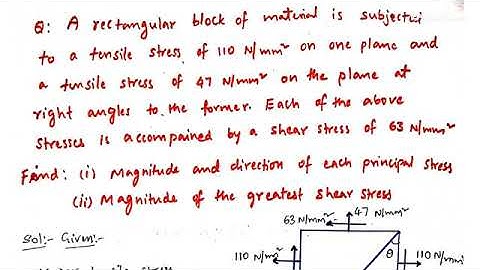 Q: A rectangular block of material is subjected
to a tensile stress of 110 N/mm² on one plane and
a tensile stress of 47 N/mm² on the plane at
right angles to the former. Each of the above
stresses is accompained by a shear stress of 63 N/mm²
Find: (i) Magnitude and direction of each principal stress
(ii) Magnitude of the greatest shear stress
Sol:- Given:-
63 N/mm² 47 N/mm²
110 N/mm² θ 110 N/mm²